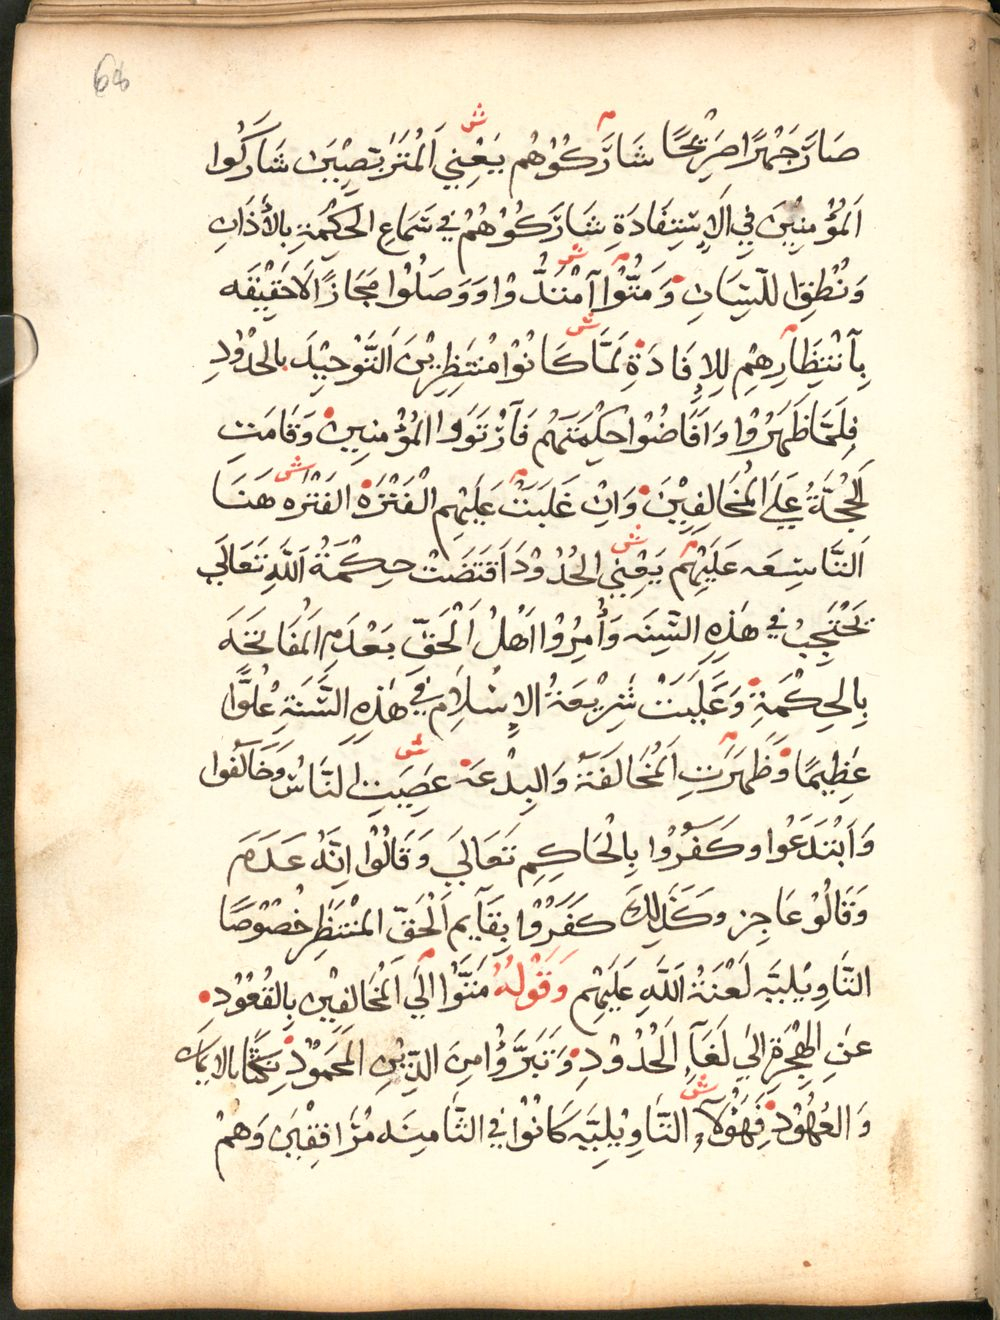 68
صَارَ جَهْرًا صَرِيْحًا شَارَكُوْهُم يَعْنِي اَلْمُتَرَبّصِيْبَن شَارَكُوا
اَلمُؤْمِنِيْنَ فِي اَلاِسْتِفَادَةِ شَارَكُوْهُمْ فِي سَمَاعِ الحَكِمَةِ بِالأُذَانِ
وَنُطْقِ اللّسَانِ وَمَتُّوْا اَمْتَدُّوْا وَوَصَلُوْا مَجَازًا لَاحَقِيْقَه
بِاَنْتِظَارِهِم لِلاِفَادَةِ لَمَّا كَانُوْا مُنْتَظِرِيْنَ اَلتَّوْحِيْدَ بِالحُدُوْدِ
فَلَمَّا ظَهَرُوْا وَاَفَاضُوْا حِكْمَتَهُم فَاَرْتَوَوا المُؤْمِنِين وَقَامَتِ
اَلحُجَّةُ عَلَي المُخَالِفِيْنَ وَاِنْ غَلَبَتْ عَلَيْهِم الْفَتْرَةُ الفَتْرَه هَنَا
اَلتَّاسِعَه عَلَيْهِم يَعْنِي الحُدُوْدَ اَقتَضَتْ حِكْمَةُ اَللّهِ تَعَالَي
تَحْتَجِبْ فِي هَذِهِ السّنَه وَأُمِرُوْا اَهْلُ اَلْحَقّ بِعَدَمِ اَلمُفَاتَحَه
بِالحِكْمَةِ وَغَلَبَتْ شَرِيْعَةُ الاِسْلَام فِي هَذِهِ السَّنَةِ عُلُوًّا
عَظِيمًا وَظَهَرَتِ اَلمُخَالَفَةُ وَالبِدْعَه عَصِيَتِ النَّاسُ وَخَالَفُوا
وَاَبْتَدَعُوا وكَفَرُوا بِالْحَاكِمِ تَعَالَي وَقَالُوْا اِنّهُ عَدَمَ
وَقَالُوْ عَاجِز وكَذَلِكَ كَفَرُوْا بِقَآيمِ اَلْحَقّ المُنْتَظَرِ خُصُوْصًا
التَّاوِيْلِيَّه لَعْنَةُ اَللّهِ عَلَيْهِم وَقَوْلهُ مَتَّوْا اِلَي اَلمُخَالِفِيْن بِالقُعُوْدِ
عَنِ الهِجْرَةِ اِلَي لَغَآءِ اَلحُدُوْدِ وَتَبَرَّؤُا مِنَ الدّيْنِ المَحمُوْدِ بِالايمَان
وَالعُهُوْدِ فَهَؤُلَآءِ التَّاوِيْلِيَّه كَانُوْا فِي الثَّامِنَه مُرَافِقْيَن وَهُمْ